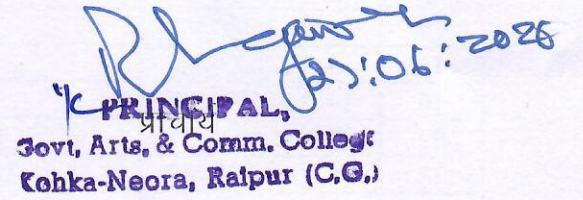 PRINCIPAL,
प्राचार्य
Govt, Arts, & Comm. College
Kohka-Neora, Raipur (C.G.)